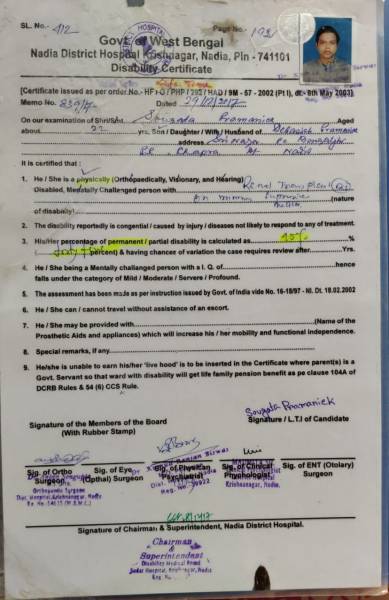 SL. No.- 412 Page No.- 192
Govt of West Bengal
Nadia District Hospital Krishnagar, Nadia, Pin - 741101
Disability Certificate
Life Time
[Certificate issued as per order.No.- HF / O / PHP / 292 / HAD / 9M - 57 - 2002 (Pt 1), dt - 8th May 2003]
Memo No. Dated 29/12/2017
On our examination of Shri/Smt. Sougata Pramanick Aged
about 22 yrs. Son / Daughter / Wife / Husband of Debasish Pramanick
address
P.S. Chapra Dt Nadia
It is certified that :
1. He / She is a physically (Orthopaedically, Visionary, and Hearing)
Disabled, Mentally Challanged person with Renal Transplant
on (nature
of disability)
2. The disability reportedly is congential / caused by injury / diseases not likely to respond to any treatment.
3. His/Her percentage of permanent / partial disability is calculated as %
( percent) & having chances of variation the case requires review after Yrs.
4. He / She being a Mentally challanged person with a I. Q. of hence
falls under the category of Mild / Moderate / Servere / Profound.
5. The assessment has been made as per instruction issued by Govt. of India vide No. 16-18/97 - NI. Dt. 18.02.2002
6. He / She can / cannot travel without assistance of an escort.
7. He / She may be provided with (Name of the
Prosthetic Aids and appliances) which will increase his / her mobility and functional independence.
8. Special remarks, if any
9. He/she is unable to earn his/her 'live hood' is to be inserted in the Certificate where parent(s) is a
Govt. Servant so that ward with disability will get life family pension benefit as pe clause 104A of
DCRB Rules & 54 (6) CCS Rule.
Sougata Pramanick
Signature / L.T.I of Candidate
Signature of the Members of the Board
(With Rubber Stamp)
Sig. of Ortho Surgeon
Sig. of Eye (Opthal) Surgeon
Sig. of Physician Psychiatrist
Sig. of Clinical Phychologist
Sig. of ENT (Otolary) Surgeon
Orthopaedic Surgeon
Dist. Hospital, Krishnagar, Nadia
Krishnagar, Nadia
Signature of Chairman & Superintendent, Nadia District Hospital.
Chairman
&
Superintendent
Disability Medical Board
Sadar Hospital, Krishnagar, Nadia